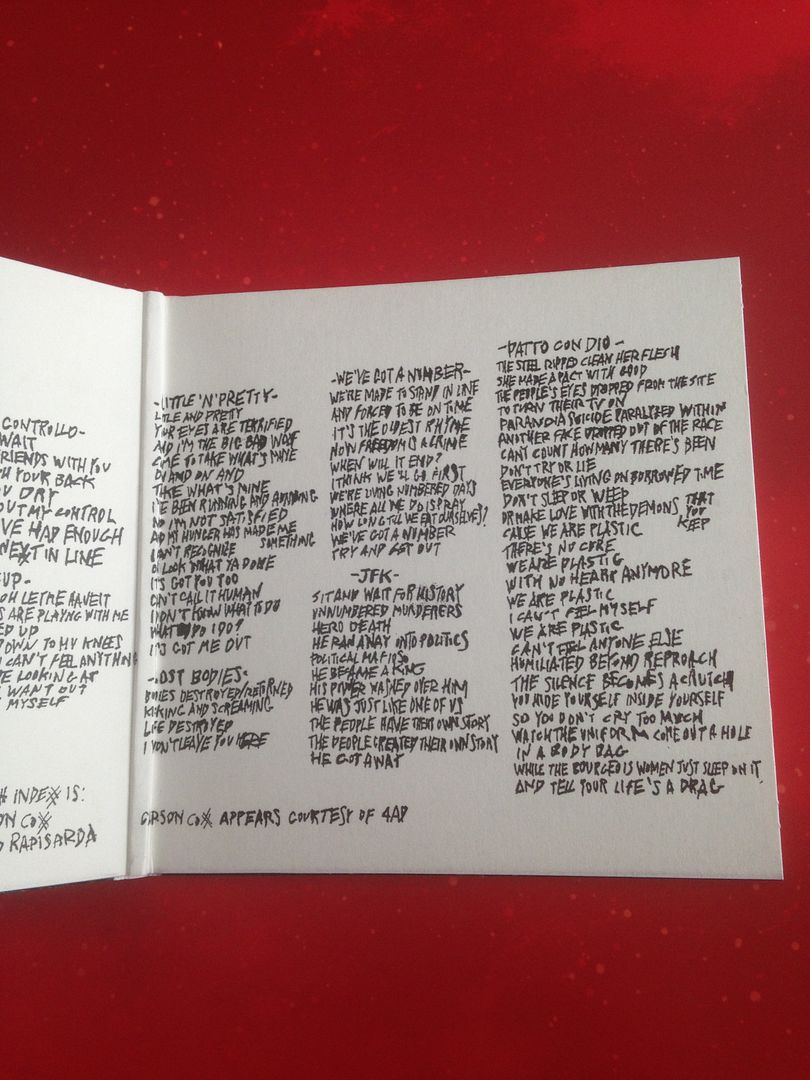 CONTROLLO-
WAIT
RIENDS WITH YOU
H YOUR BACK
U DRY
OUT MY CONTROL
VE HAD ENOUGH
NEXT IN LINE
UP-
OH LET ME HAVE IT
S ARE PLAYNG WITH ME
ED UP
DOWN TO MY KNEES
I CAN'T FEEL ANYTHING
E LOOKING AT
WANT OUT?
MYSELF
H INDEX IS:
ON COX
O RAPISARDA
-LITTLE 'N' PRETTY-
LITLE AND PRETTY
YOUR EYES ARE TERRIFIED
AND I'M THE BIG BAD WOLF
COME TO TAKE WHAT'S MINE
ON AND ON AND
TAKE WHAT'S MINE
I'VE BEEN RUNNING AND RUNNING
NO I'M NOT SATISFIED
AND MY HUNGER HAS MADE ME
SOMETHING
I CAN'T RECOGNIZE
OH LOOK WHAT YA DONE
IT'S GOT YOU TOO
CAN'T CALL IT HUMAN
I DON'T KNOW WHAT TO DO
WHAT DO I DO?
IT'S GOT ME OUT
-LOST BODIES-
BODIES DESTROYED/RETURNED
KICKING AND SCREAMING
LIFE DESTROYED
I WON'T LEAVE YOU HERE
-WE'VE GOT A NUMBER-
WE'RE MADE TO STAND IN LINE
AND FORCED TO BE ON TIME
IT'S THE OLDEST RHYME
NOW FREEDOM IS A CRIME
WHEN WILL IT END?
I THINK WE'LL GO FIRST
WE'RE LIVING NUMBERED DAYS
WHERE ALL WE DO IS PRAY
HOW LONG TILL WE EAT OURSELVES?
WE'VE GOT A NUMBER
TRY AND GET OUT
-JFK-
SIT AND WAIT FOR HISTORY
UNNUMBERED MURDERERS
HERO DEATH
HE RAN AWAY INTO POLITICS
POLITICAL MAFIOSO
HE BECAME A KING
HIS POWER WASHED OVER HIM
HE WAS JUST LIKE ONE OF US
THE PEOPLE HAVE THEIR OWN STORY
THE PEOPLE CREATED THEIR OWN STORY
HE GOT AWAY
-PATTO CON DIO-
THE STEEL RIPPED CLEAN HER FLESH
SHE MADE A PACT WITH GOOD
THE PEOPLE'S EYES DROPPED FROM THE SITE
TO TURN THEIR TV ON
PARANOIA SUICIDE PARALYZED WITHIN
ANOTHER FACE DROPPED OUT OF THE RACE
CAN'T COUNT HOW MANY THERE'S BEEN
DON'T TRY OR LIE
EVERYONE'S LIVING ON BORROWED TIME
DON'T SLEEP OR WEEP
OR MAKE LOVE WITH THE DEMONS THAT
YOU
KEEP
CAUSE WE ARE PLASTIC
THERE'S NO CURE
WE ARE PLASTIC
WITH NO HEART ANYMORE
WE ARE PLASTIC
I CAN'T FEEL MYSELF
WE ARE PLASTIC
CAN'T FEEL ANYONE ELSE
HUMILIATED BEYOND REPROACH
THE SILENCE BECOMES A CRUTCH
YOU HIDE YOURSELF INSIDE YOURSELF
SO YOU DON'T CRY TOO MUCH
WATCH THE UNIFORM COME OUT A HOLE
IN A BODY BAG
WHILE THE BOURGEOIS WOMEN JUST SLEEP ON IT
AND TELL YOUR LIFE'S A DRAG
CARSON COX APPEARS COURTESY OF 4AD